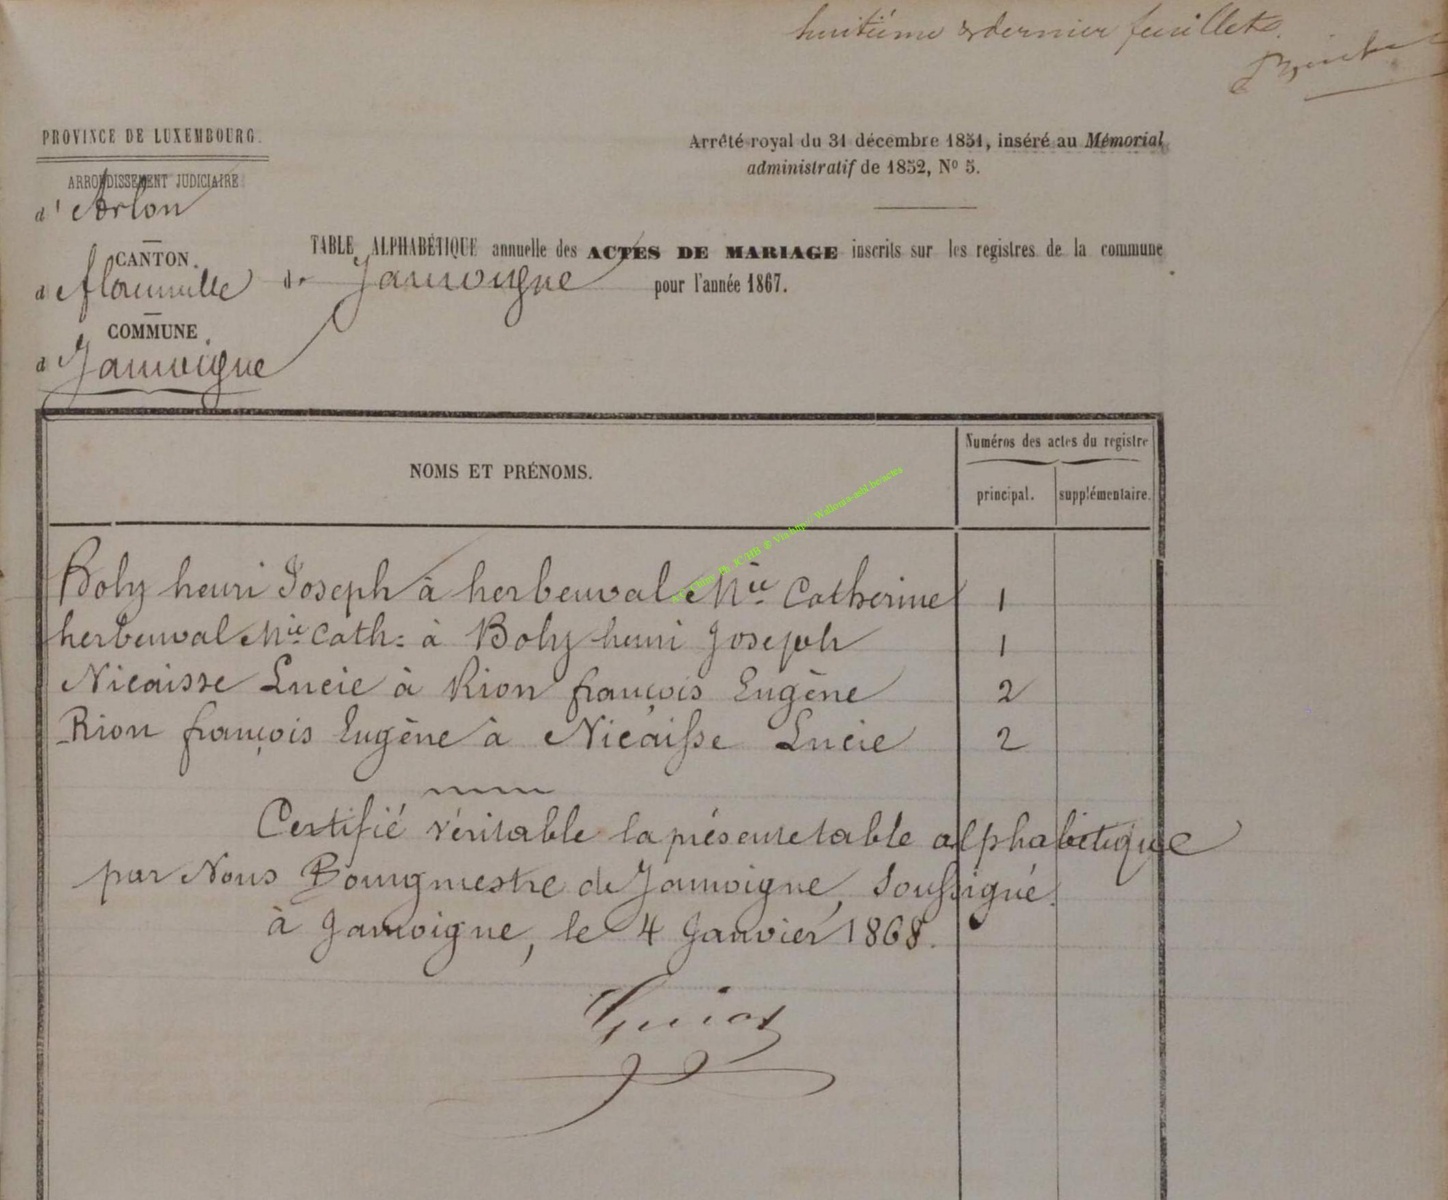 huitième & dernier feuillet.
PROVINCE DE LUXEMBOURG.
ARRONDISSEMENT JUDICIAIRE
d'Arlon
CANTON.
d florenville
COMMUNE.
d Jamoigne
Arrêté royal du 31 décembre 1851, inséré au Mémorial
administratif de 1852, No 5.
TABLE ALPHABÉTIQUE annuelle des ACTES DE MARIAGE inscrits sur les registres de la commune
de Jamoigne pour l'année 1867.
NOMS ET PRÉNOMS.
Numéros des actes du registre
principal.
supplémentaire.
Bohy henri Joseph à herbeuval Mie Catherine 1
herbeuval Mie Cath: à Bohy henri Joseph 1
Nicaisse Lucie à Rion françois Eugène 2
Rion françois Eugène à Nicaisse Lucie 2
Certifié véritable la présente table alphabétique
par Nous Bourgmestre de Jamoigne, Soussigné.
à Jamoigne, le 4 Janvier 1868.